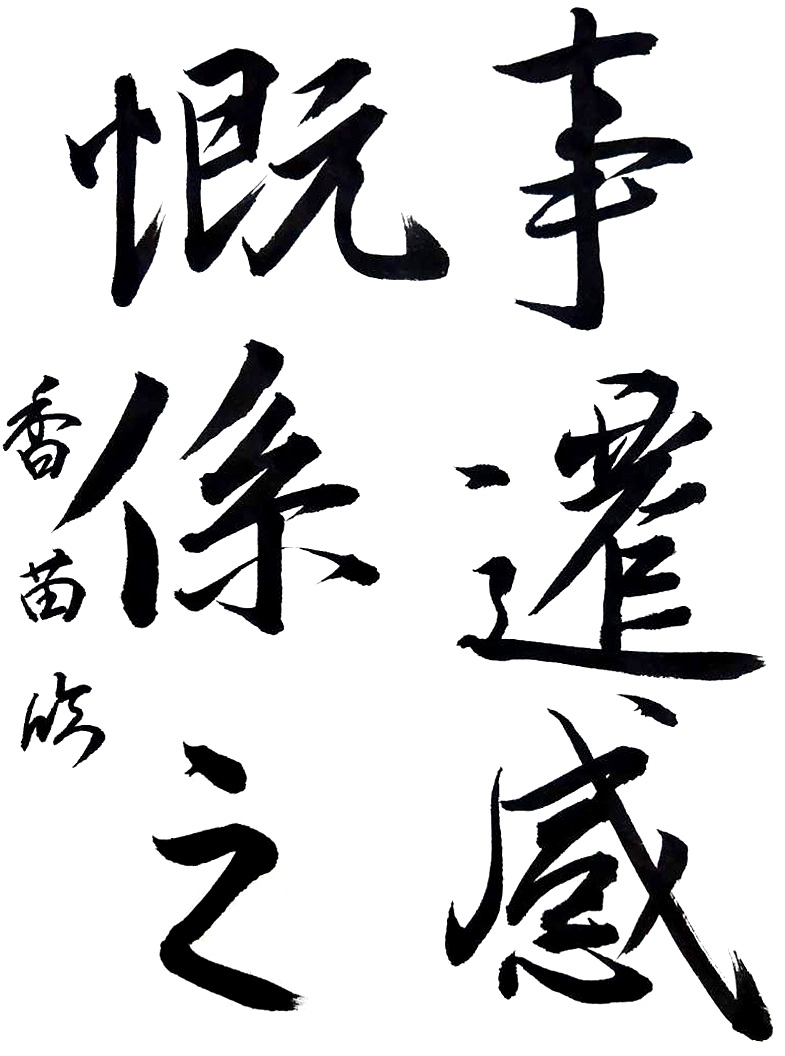 事遷感
慨係之
香苗臨